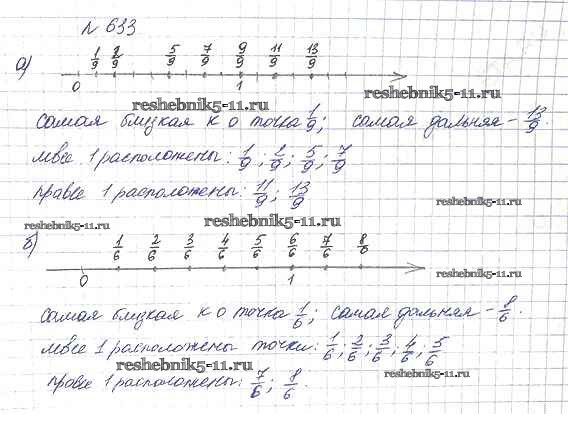 № 633
а) 1/9 2/9 5/9 7/9 9/9 11/9 13/9
0 1
reshebnik5-11.ru
самая близкая к 0 точка 1/9; самая дальняя - 13/9.
левее 1 расположены: 1/9; 2/9; 5/9; 7/9
правее 1 расположены: 11/9; 13/9
reshebnik5-11.ru
reshebnik5-11.ru
reshebnik5-11.ru
б) 1/6 2/6 3/6 4/6 5/6 6/6 7/6 8/6
0 1
reshebnik5-11.ru
самая близкая к 0 точка 1/6; самая дальняя - 8/6.
левее 1 расположены точки: 1/6; 2/6; 3/6; 4/6; 5/6
reshebnik5-11.ru
reshebnik5-11.ru
правее 1 расположены: 7/6; 8/6.